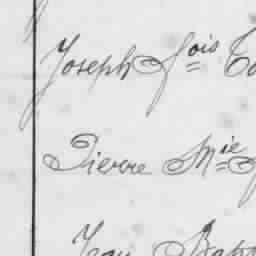 Joseph fois
Pierre Mie
Jean Bapt